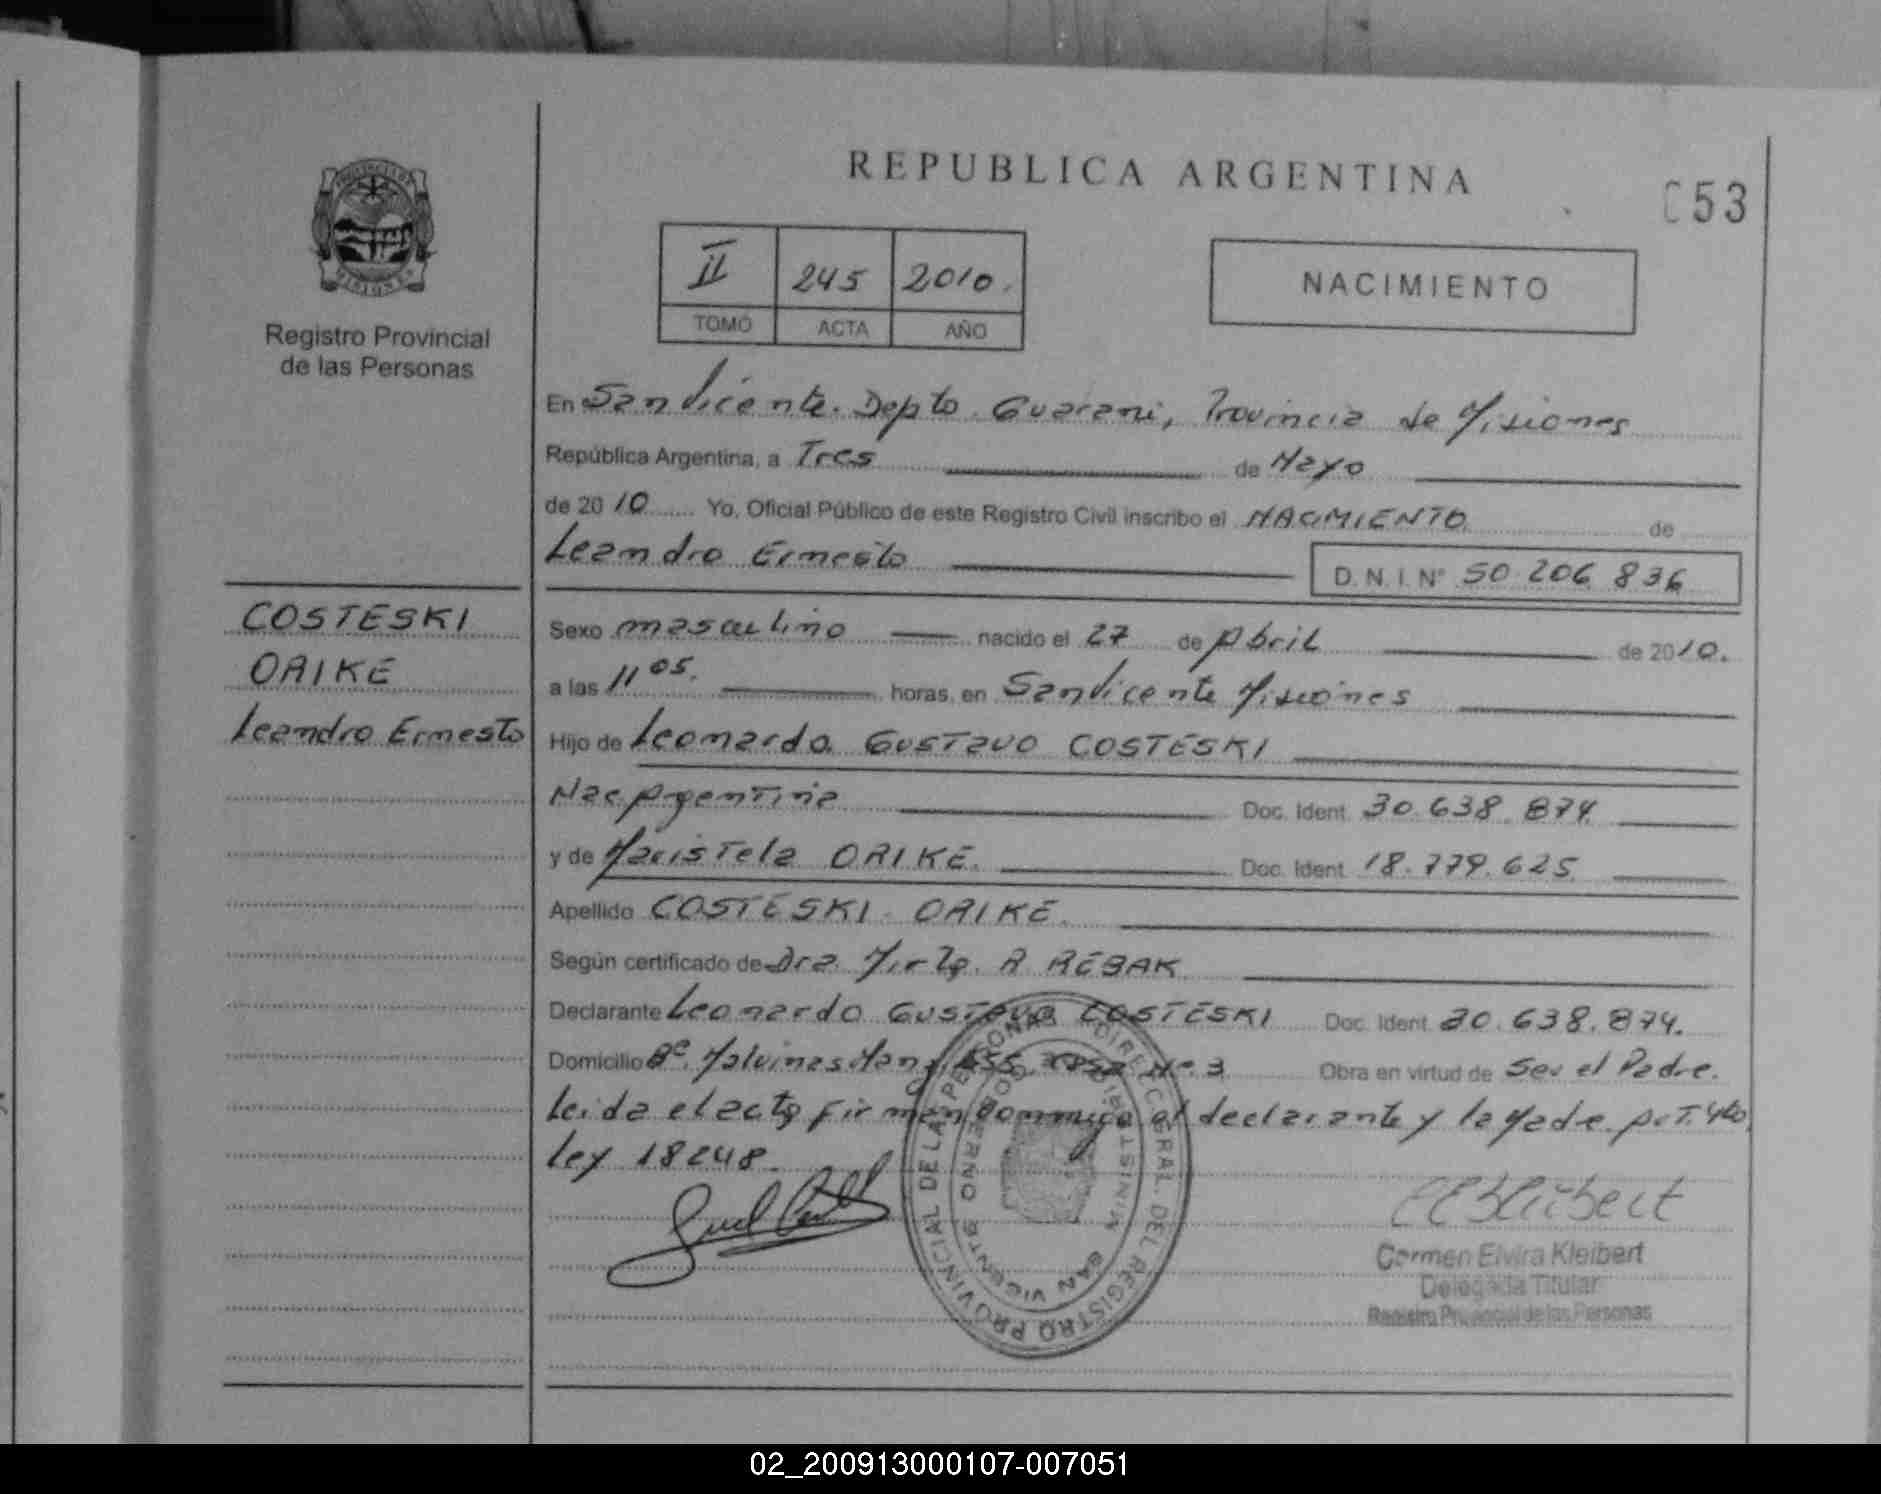 REPUBLICA ARGENTINA
053
PROVINCIA DE
MISIONES
Registro Provincial
de las Personas
II 245 2010.
TOMO ACTA AÑO
NACIMIENTO
En San Vicente. Depto Guarani, Provincia de Misiones
República Argentina, a Tres de Mayo
de 2010 Yo, Oficial Público de este Registro Civil inscribo el NACIMIENTO de
Leandro Ernesto D.N.I. Nº 50.206.836
COSTESKI
ORIKE
Leandro Ernesto
Sexo masculino nacido el 27 de Abril de 2010.
a las 11 05. horas, en San Vicente Misiones
Hijo de Leonardo Gustavo COSTESKI
Nac Argentina Doc. Ident. 30.638.874
y de Maristela ORIKE. Doc. Ident. 18.779.625
Apellido COSTESKI ORIKE.
Según certificado de Dra. Mirta. A REBAK
Declarante Leonardo Gustavo COSTESKI Doc. Ident. 30.638.874.
Domicilio Bº. Malvinas Manz. 155. casa Nº. 3 Obra en virtud de Ser el Padre.
Leida el acta firman conmigo el declarante y la Madre. Art. 4to
Ley 18248.
DIRECC. GRAL. DEL REGISTRO PROVINCIAL DE LAS PERSONAS
MINISTERIO DE GOBIERNO
SAN VICENTE
Carmen Elvira Kleibert
Delegada Titular
Registro Provincial de las Personas
02_200913000107-007051